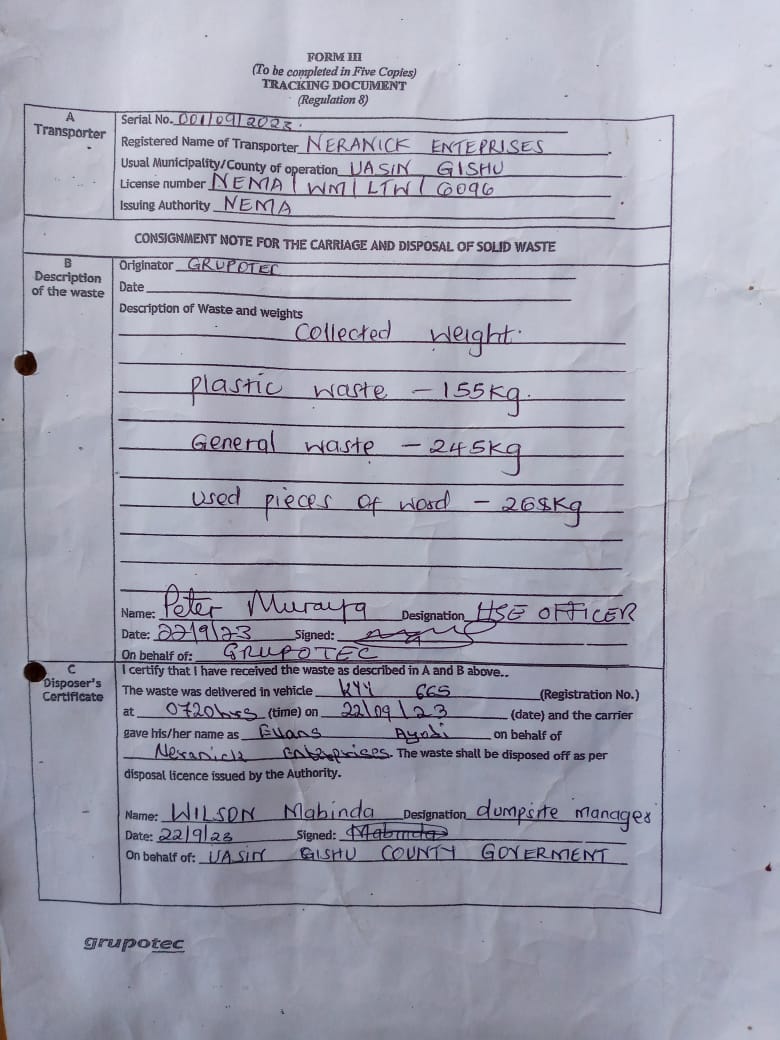 FORM III
(To be completed in Five Copies)
TRACKING DOCUMENT
(Regulation 8)
A
Transporter
Serial No. 001/09/2023.
Registered Name of Transporter NERANICK ENTEPRISES
Usual Municipality/County of operation UASIN GISHU
License number NEMA/WM/LTW/6096
Issuing Authority NEMA
CONSIGNMENT NOTE FOR THE CARRIAGE AND DISPOSAL OF SOLID WASTE
B
Description
of the waste
Originator GRUPOTEC
Date
Description of Waste and weights
Collected weight.
plastic waste - 155kg.
General waste - 245kg
used pieces of wood - 268kg
Name: Peter Muraya Designation HSE OFFICER
Date: 22/9/23 Signed:
On behalf of: GRUPOTEC
C
Disposer's
Certificate
I certify that I have received the waste as described in A and B above..
The waste was delivered in vehicle KYY 665 (Registration No.)
at 0720hrs (time) on 22/09/23 (date) and the carrier
gave his/her name as Evans Ayodi on behalf of
Neranick Enterprises. The waste shall be disposed off as per
disposal licence issued by the Authority.
Name: WILSON Mabinda Designation dumpsite manager
Date: 22/9/23 Signed: Mabinda
On behalf of: UASIN GISHU COUNTY GOVERMENT
grupotec